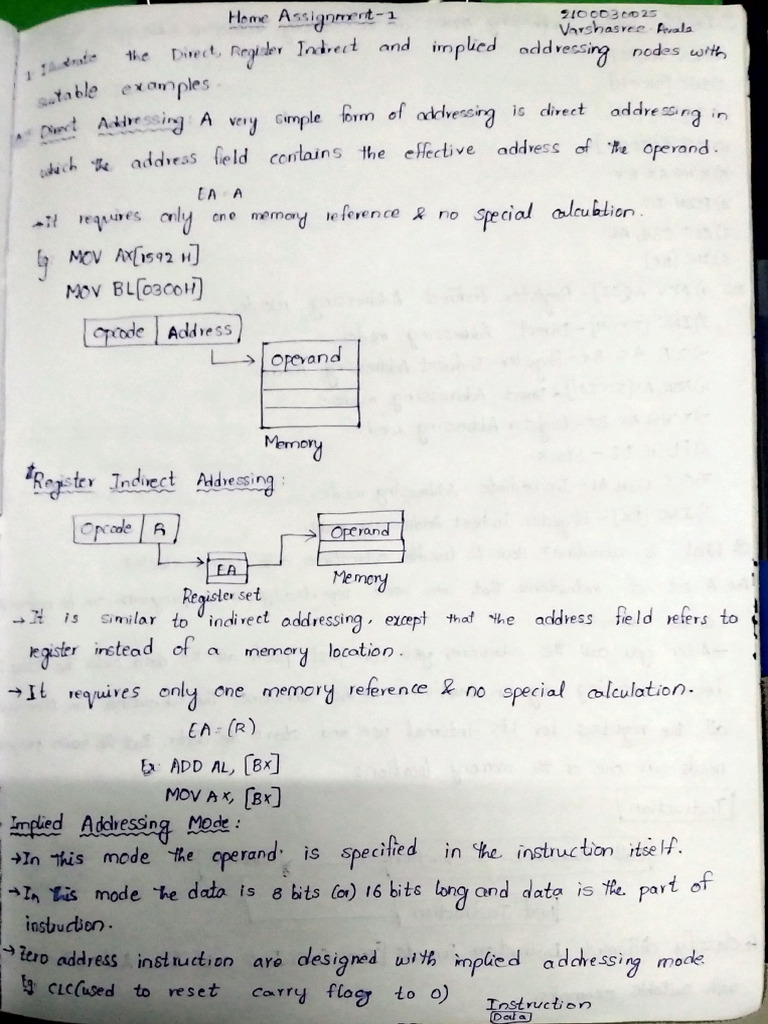 Home Assignment-1
2100030025
Varshasree Avala
1. Illustrate the Direct, Register Indirect and implied addressing nodes with
suitable examples.
A. Direct Addressing: A very simple form of addressing is direct addressing in
which the address field contains the effective address of the operand.
EA = A
→it requires only one memory reference & no special calculation.
Eg MOV AX[1592 H]
MOV BL[0300H]
Opcode Address
Operand
Memory
*Register Indirect Addressing:
Opcode R
Operand
EA
Memory
Register set
→ It is similar to indirect addressing, except that the address field refers to
register instead of a memory location.
→ It requires only one memory reference & no special calculation.
EA=(R)
Ex: ADD AL, [BX]
MOV AX, [BX]
Implied Addressing Mode:
→In this mode the operand is specified in the instruction itself.
→In this mode the data is 8 bits (or) 16 bits long and data is the part of
instruction.
→Zero address instruction are designed with implied addressing mode.
Eg: CLC(used to reset carry flog to 0)
Instruction
Data